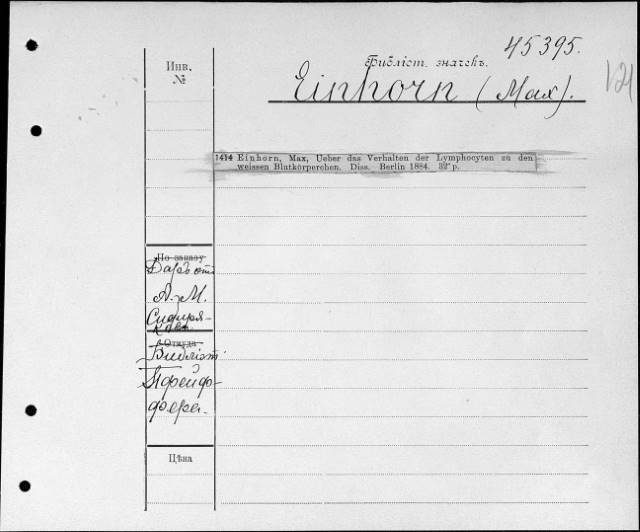 45395.
Инв.
№
Библіот. значекъ.
Einhorn (Max).
121
1414 Einhorn, Max, Ueber das Verhalten der Lymphocyten zu den
weissen Blutkörperchen. Diss. Berlin 1884. 32° p.
По заказу
Даръ отъ
А. М.
Сибиря-
кова.
Откуда
Библіот.
Пфейф-
фера.
Цѣна